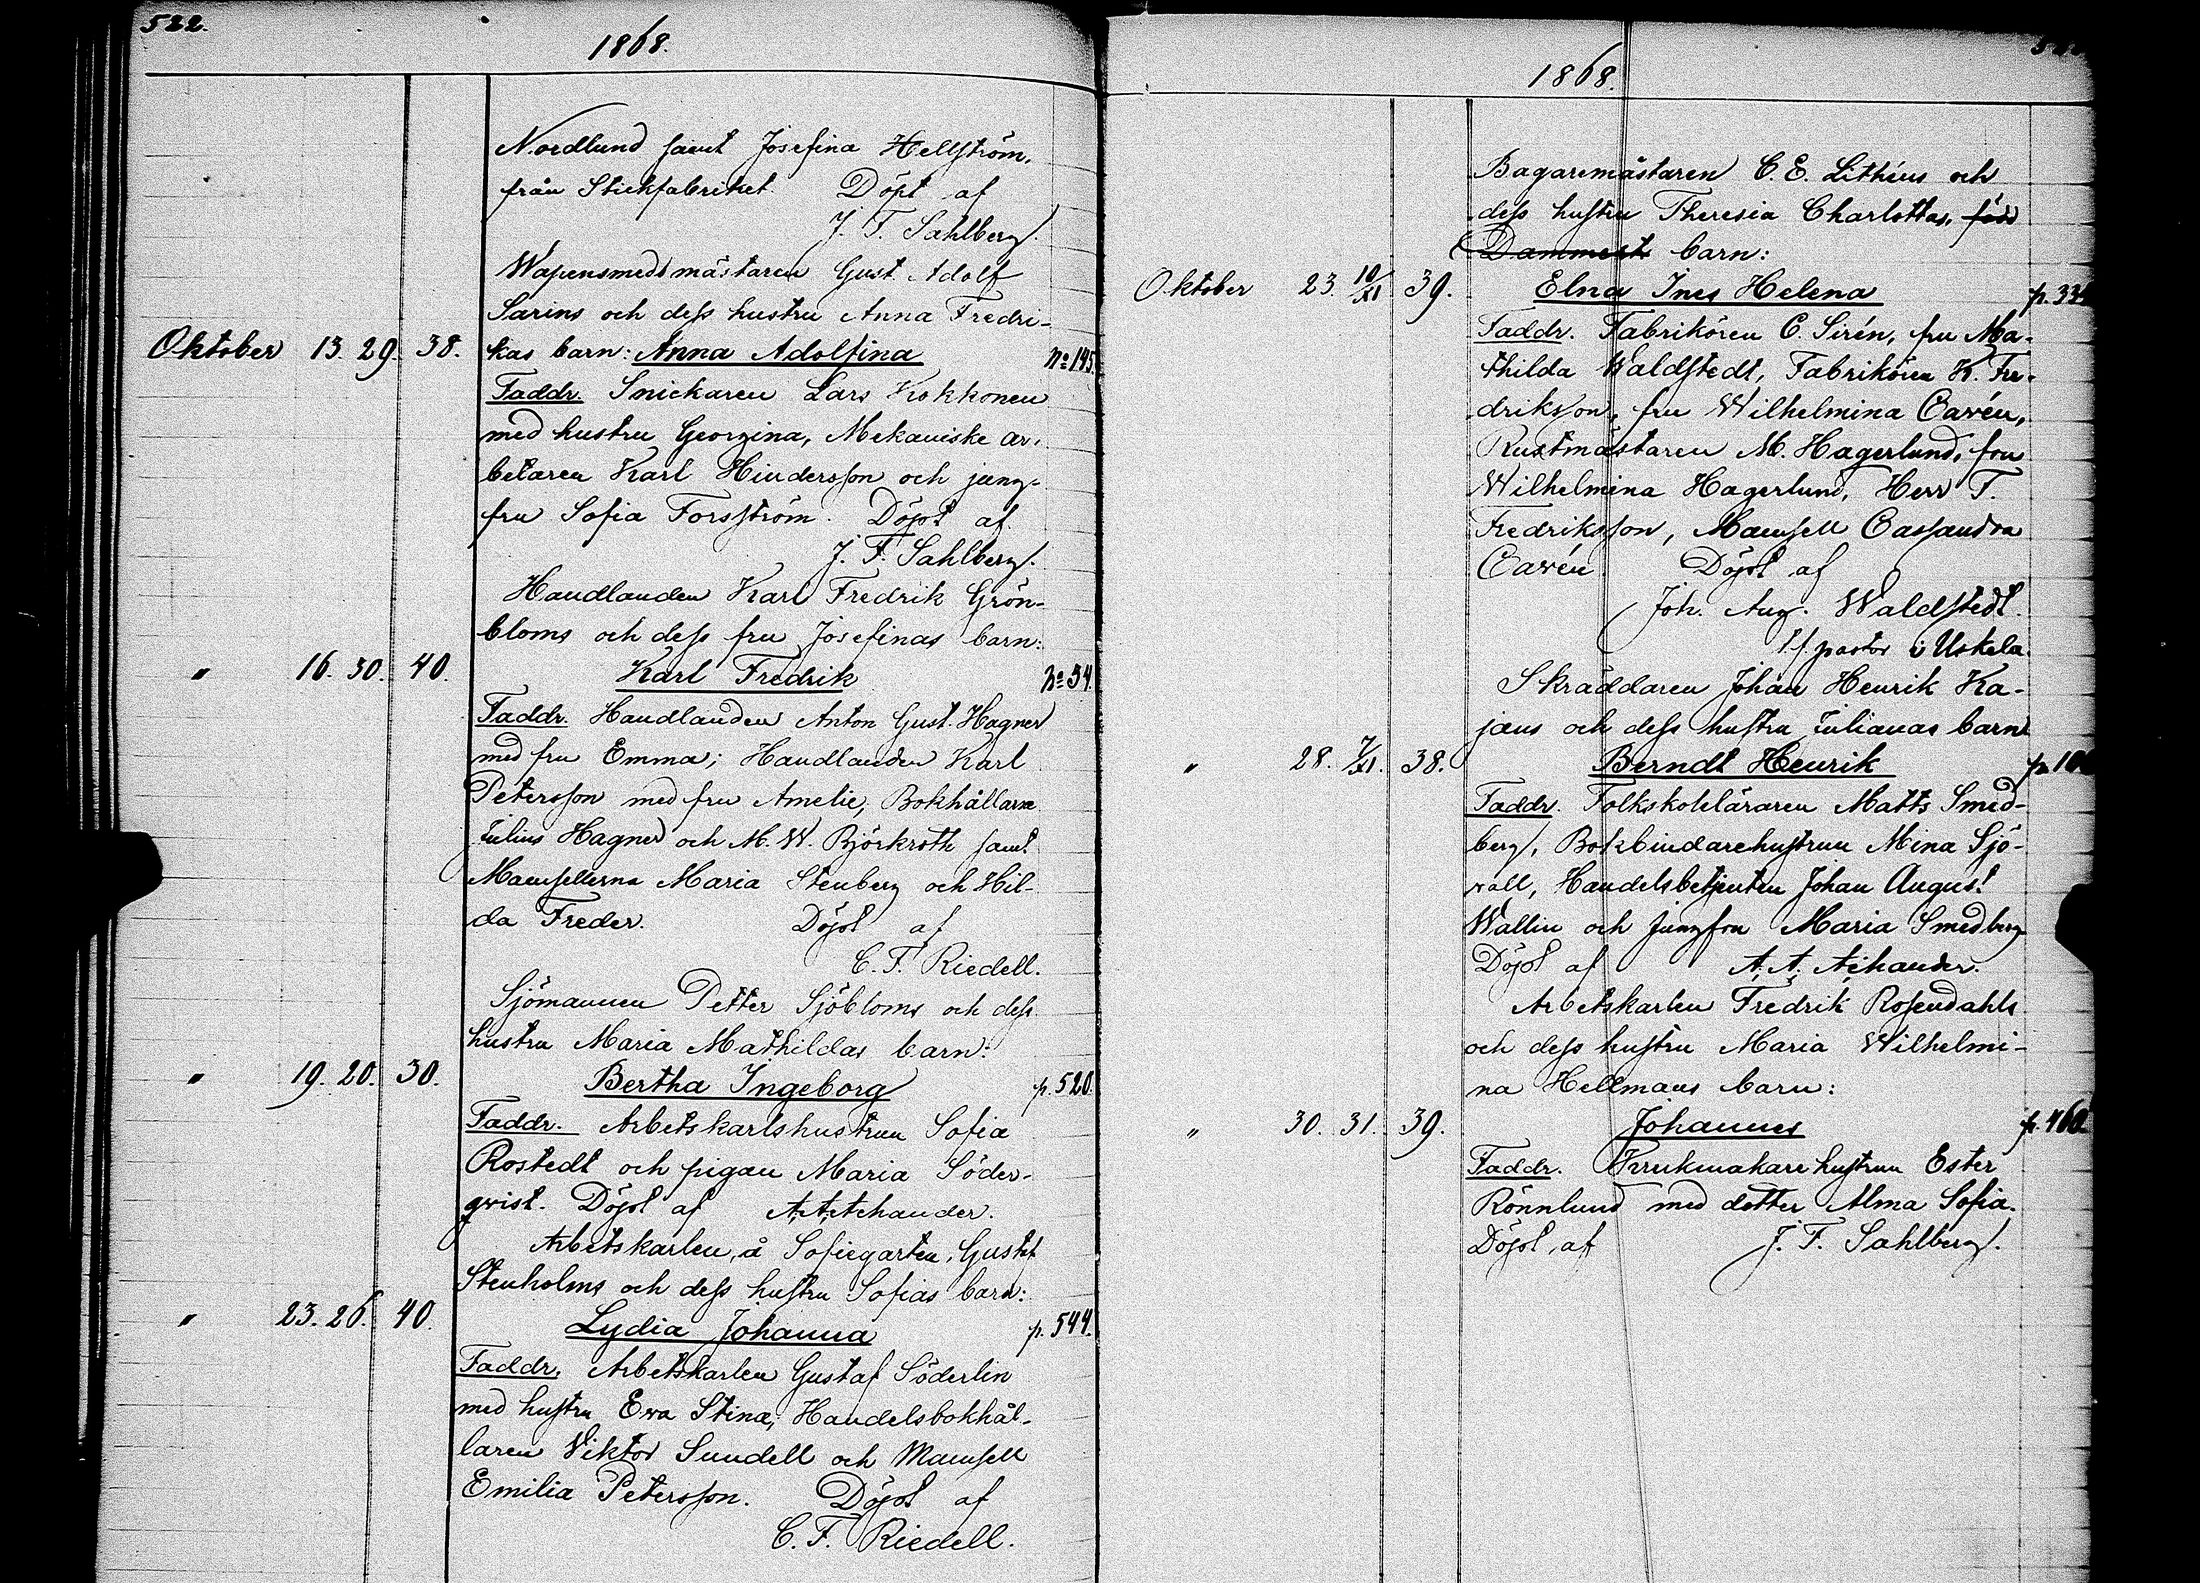 522.
1868.
Nordlund samt Josefina Hellström,
från Stickfabriket. Döpt af
J. F. Sahlberg.
Wapensmedsmästaren Gust. Adolf
Sarins och dess hustru Anna Fredri-
Oktober 13. 29. 38. kas barn: Anna Adolfina No 145.
Faddr. Snickaren Lars Kokkonen
med hustru Georgina, Mekaniske ar-
betaren Karl Hindersson och jung-
fru Sofia Forsström. Döpt af
J. F. Sahlberg.
Handlanden Karl Fredrik Grön-
bloms och dess fru Josefinas barn:
" 16. 30. 40. Karl Fredrik No 34.
Faddr. Handlanden Anton Gust. Hagner
med fru Emma; Handlanden Karl
Petersson med fru Amelie, Bokhållarne
Julius Hagner och M. W. Björkroth samt
Mamsellerna Maria Stenberg och Hil-
da Freder. Döpt af
C. F. Riedell.
Sjömannen Petter Sjöbloms och dess
hustru Maria Mathildas barn:
" 19. 20. 30. Bertha Ingeborg p. 520.
Faddr. Arbetskarlshustrun Sofia
Rostedt och pigan Maria Söder-
qvist. Döpt af A. A. Achander.
Arbetskarlen, å Sofiegarten, Gustaf
Stenholms och dess hustru Sofias barn:
" 23. 26. 40. Lydia Johanna p. 544.
Faddr. Arbetskarlen Gustaf Söderlin
med hustru Ewa Stina, Handelsbokhål-
laren Viktor Sundell och Mamsell
Emilia Petersson. Döpt af
C. F. Riedell.
1868.
Bagaremästaren C. E. Lithéns och
dess hustru Theresia Charlottas, född
Dammert barn:
Oktober 23. 10/XI 39. Elna Ines Helena p. 334
Faddr. Fabrikören C. Sirén, fru Ma-
thilda Waldstedt, Fabrikören K. Fre-
driksson, fru Wilhelmina Cavén,
Rustmästaren M. Hagerlund, fru
Wilhelmina Hagerlund, Herr F.
Fredriksson, Mamsell Cassandra
Cavén. Döpt af
Joh. Aug. Waldstedt.
t.f. pastor i Uskela.
Skräddaren Johan Henrik Ka-
jans och dess hustru Julianas barn
" 28. 7/XI. 38. Berndt Henrik
Faddr. Folkskolläraren Matts Smed-
berg, Bokbindarehustrun Mina Sjö-
wall, Handelsbetjenten Johan August
Wallin och Jungfru Maria Smedberg
Döpt af A. A. Achander.
Arbetskarlen Fredrik Rosendahls
och dess hustru Maria Wilhelmi-
na Hellmans barn:
" 30. 31. 39. Johannes p. 460
Faddr. Krukmakarehustrun Ester
Rönnlund med dotter Alma Sofia.
Döpt af J. F. Sahlberg.